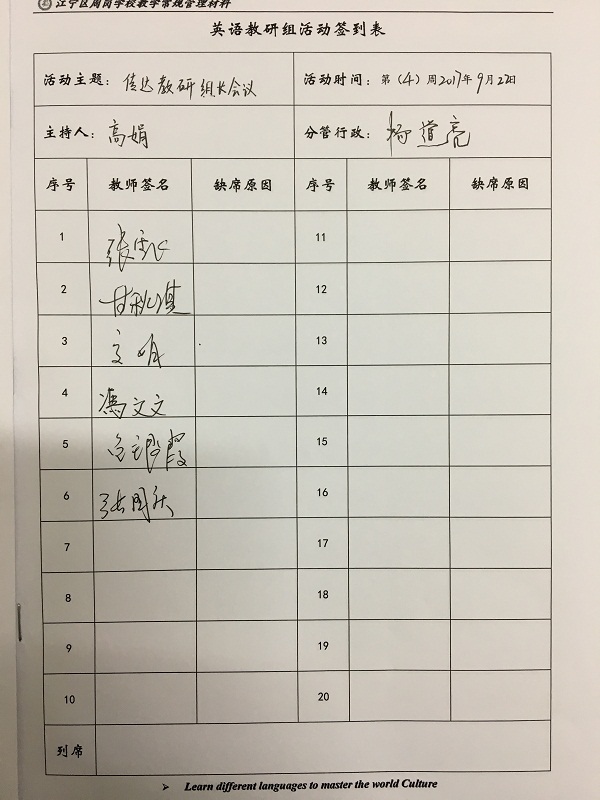 江宁区周岗学校教学常规管理材料
英语教研组活动签到表
活动主题：传达教研组长会议 活动时间：第（4）周2017年9月22日
主持人：高娟 分管行政：杨道亮
序号 教师签名 缺席原因 序号 教师签名 缺席原因
1 11
2 12
3 13
4 冯文文 14
5 15
6 16
7 17
8 18
9 19
10 20
列席
➢ Learn different languages to master the world Culture